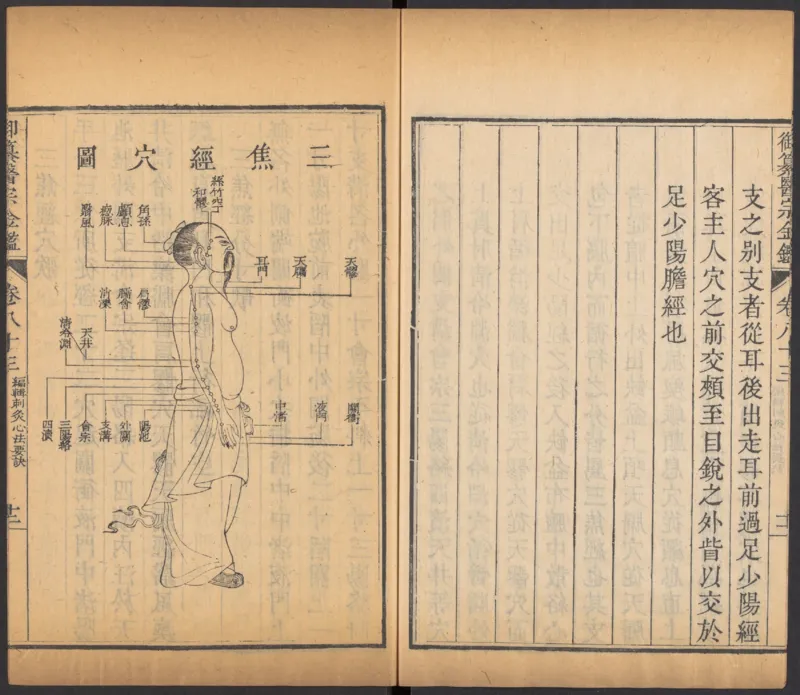 御纂醫宗金鑑
卷八十三
支之别支者從耳後出走耳前過足少陽經
客主人穴之前交頰至目銳之外眥以交於
足少陽膽經也
三焦經穴圖
絲竹空
和髎
角孫
顱息
瘈脉
翳風
耳門
天牖
天髎
肩髎
臑會
消濼
天井
清冷淵
四瀆
三陽絡
會宗
支溝
外關
陽池
中渚
液門
關衝
御纂醫宗金鑑
卷八十三
編輯刺灸心法要訣